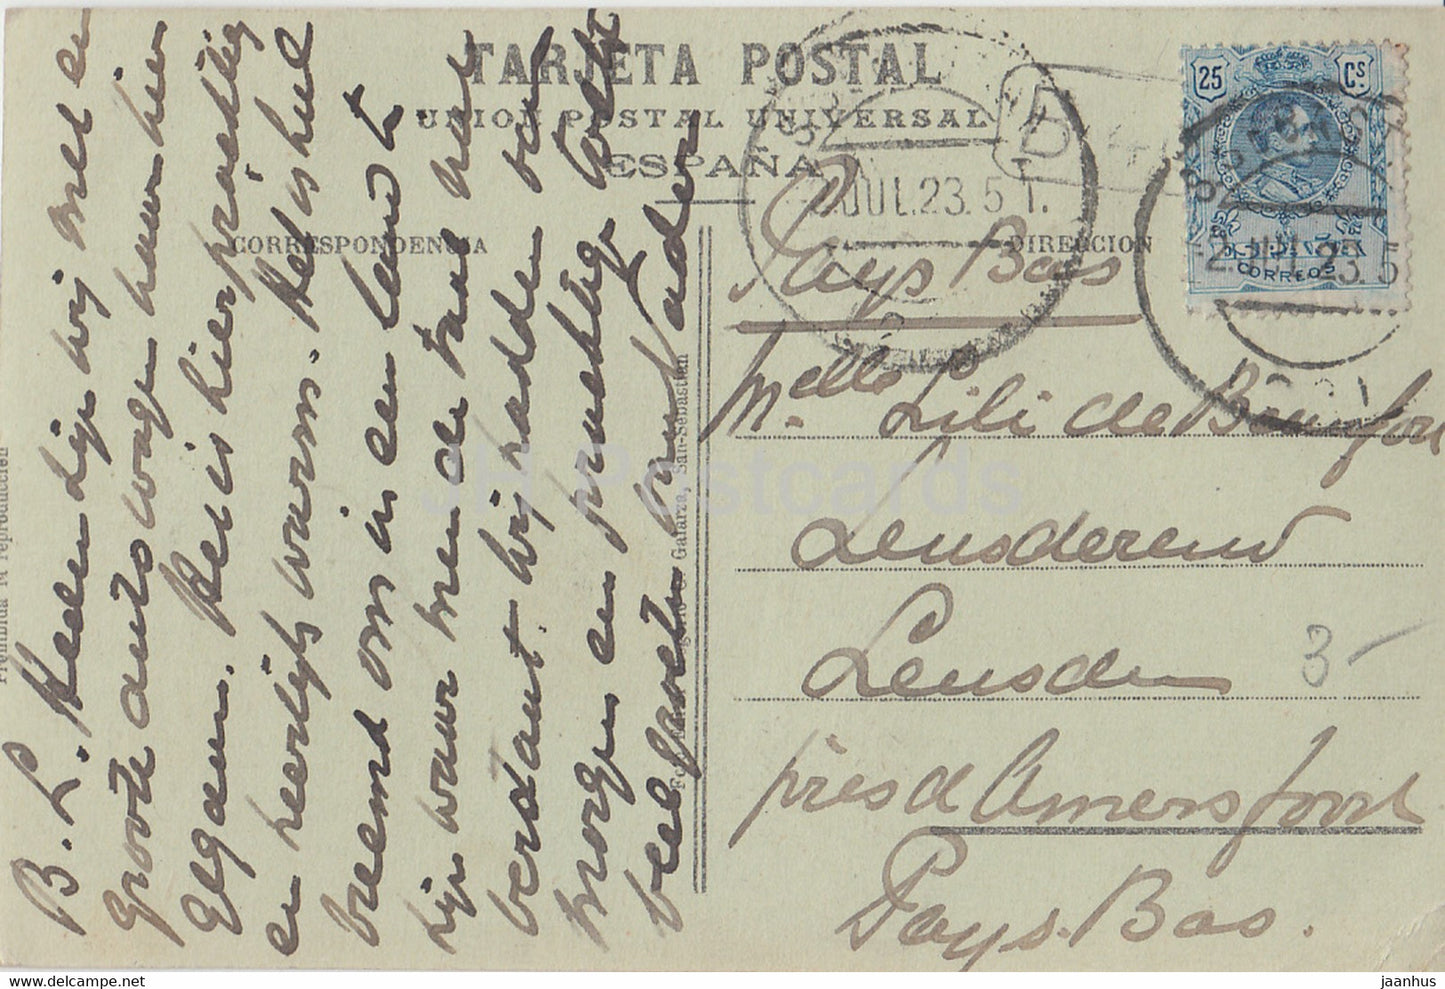 TARJETA POSTAL
UNION POSTAL UNIVERSAL
ESPAÑA
CORRESPONDENCIA
DIRECCION
25 Cs
CORREOS
2.JUL.23.5T.
2.JUL.23.5
B
Pays Bas
Melle Lili de Beaufort
Leusderend
Leusden
près d'Amersfoort
Pays-Bas.
3-
B. L. Heden zijn wij met een
groote auto
gegaan. Het is hier prachtig
en heerlijk warm. Het is heel
vreemd om in een land te
zijn waar men de taal niet
verstaat. Wij hadden van
morgen een prachtig
veel groeten van Vader
Prohibida la reproducción
Galarza, San-Sebastian
JH Postcards
https://www.delcampe.net
jaanhus